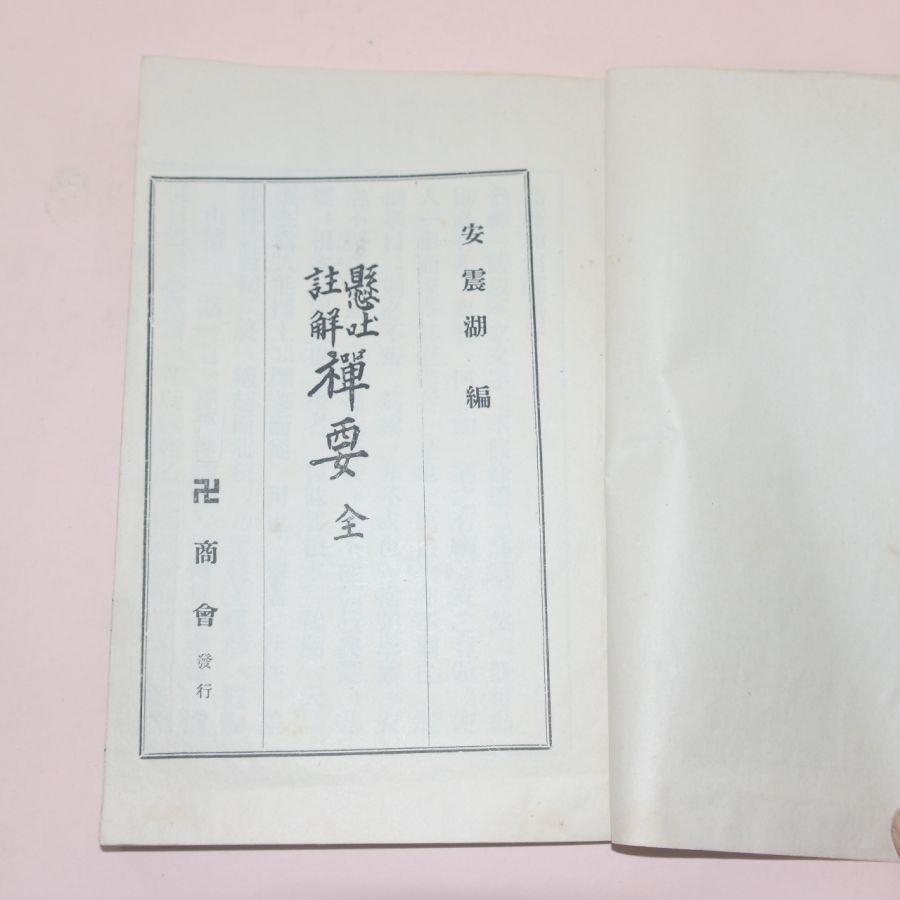 安震湖 編
懸吐
註解
禪要 全
卍商會 發行